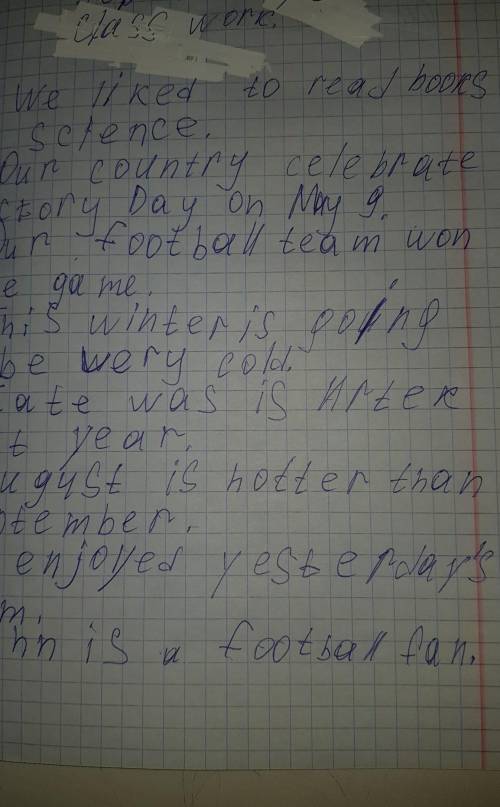 Class work.
We liked to read books
science.
Our country celebrate
ctory Day on May 9.
ur football team won
e game.
his winter is going
be wery cold.
ate was is Artek
t year.
ugyst is hotter than
ptember.
enjoyed yesterday's
m.
hn is a football fan.